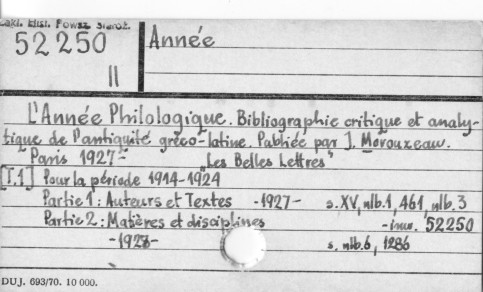 Zakł. Hist. Powsz. Staroż.
52250
II
Année
L'Année Philologique. Bibliographie critique et analy-
tique de l'antiquité gréco-latine. Publiée par J. Marouzeau.
Paris 1927- "Les Belles Lettres"
[T.1] Pour la période 1914-1924
Partie 1: Auteurs et Textes -1927- s. XV, nlb.1, 461, nlb.3
Partie 2: Matières et disciplines - inw. 52250
-1928- s. nlb.6, 1286
DUJ. 693/70. 10 000.